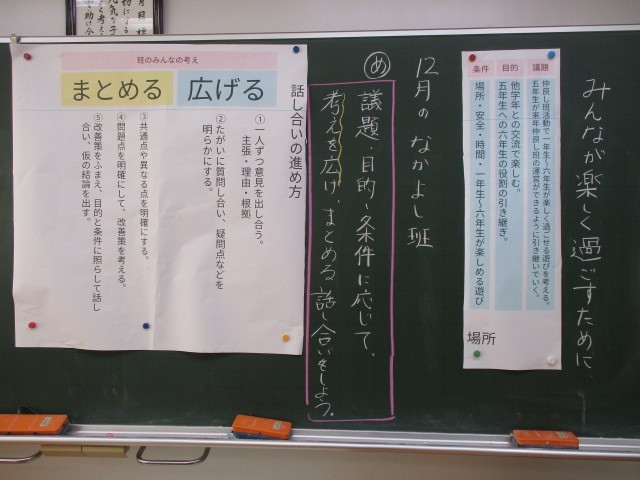 みんなが楽しく過ごすために
議題
仲良し班活動で一年生~六年生が楽しく過ごせる遊びを考える。
五年生が来年仲良し班の運営ができるように引き継いでいく。
目的
他学年との交流で楽しむ。
五年生への六年生の役割の引き継ぎ。
条件
場所・安全・時間・一年生~六年生が楽しめる遊び
場所
12月の なかよし班
め
議題・目的・条件に応じて、
考えを広げ、まとめる 話し合いをしよう。
話し合いの進め方
班のみんなの考え
広げる
①一人ずつ意見を出し合う。
主張・理由・根拠
②たがいに質問し合い、疑問点などを
明らかにする。
まとめる
③共通点や異なる点を明確にする。
④問題点を明確にして、改善策を考える。
⑤改善策をふまえ、目的と条件に照らして話し
合い、仮の結論を出す。